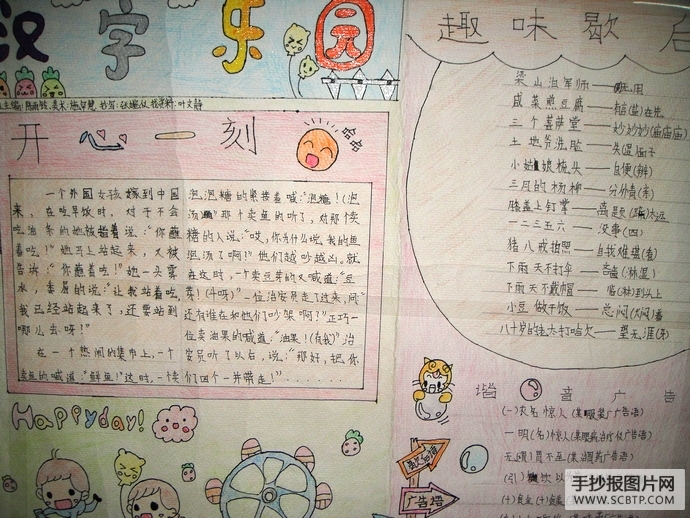 汉字乐园
开心一刻
哈哈
一个外国女孩嫁到中国
来，在吃早饭时，对于不会
吃油条的她被指着说："你蘸
着吃！"她马上站起来，又被
告诉："你蘸着吃！"她一头雾
水，委屈的说："让我站着吃，
我已经站起来了，还要站到
哪儿去呀？"
在一个热闹的集市上，一个
卖鱼的喊道："鲜鱼！"这时，一个卖
泡泡糖的紧接着喊："泡糖！(泡
汤)"那个卖鱼的听了，对那卖
糖的人说："哎，你为什么说我的鱼
泡汤了啊！"他们越吵越凶。就
在这时，一个卖豆芽的又喊道："豆
芽！(斗呀)"一位治安员走了过来，问：
"还有谁在和他们吵架啊？"正巧一
位卖油果的喊道："油果！(有我)"治
安员听了以后，说："那好，把你
们四个一并带走！"......
Happyday!
趣味歇后
梁山泊军师——吴用
咸菜煎豆腐——有言(盐)在先
三个菩萨堂——妙妙妙(庙庙庙)
土地爷洗脸——失(湿)面子
小姑娘梳头——自便(辫)
三月的杨柳——分外青(亲)
膝盖上钉掌——离题(蹄)太远
一二三五六——没事(四)
猪八戒拍照——自我难堪(看)
下雨天不打伞——吝啬(淋湿)
下雨天不戴帽——临(淋)到头上
小豆做干饭——总闷(焖)着
八十岁的老太打哈欠——望无涯(牙)
谐音广告
(一)衣名惊人(某服装广告语)
一明(名)惊人(某眼病治疗仪广告语)
歇后语
广告墙
手抄报图片网
WWW.SCBTP.COM